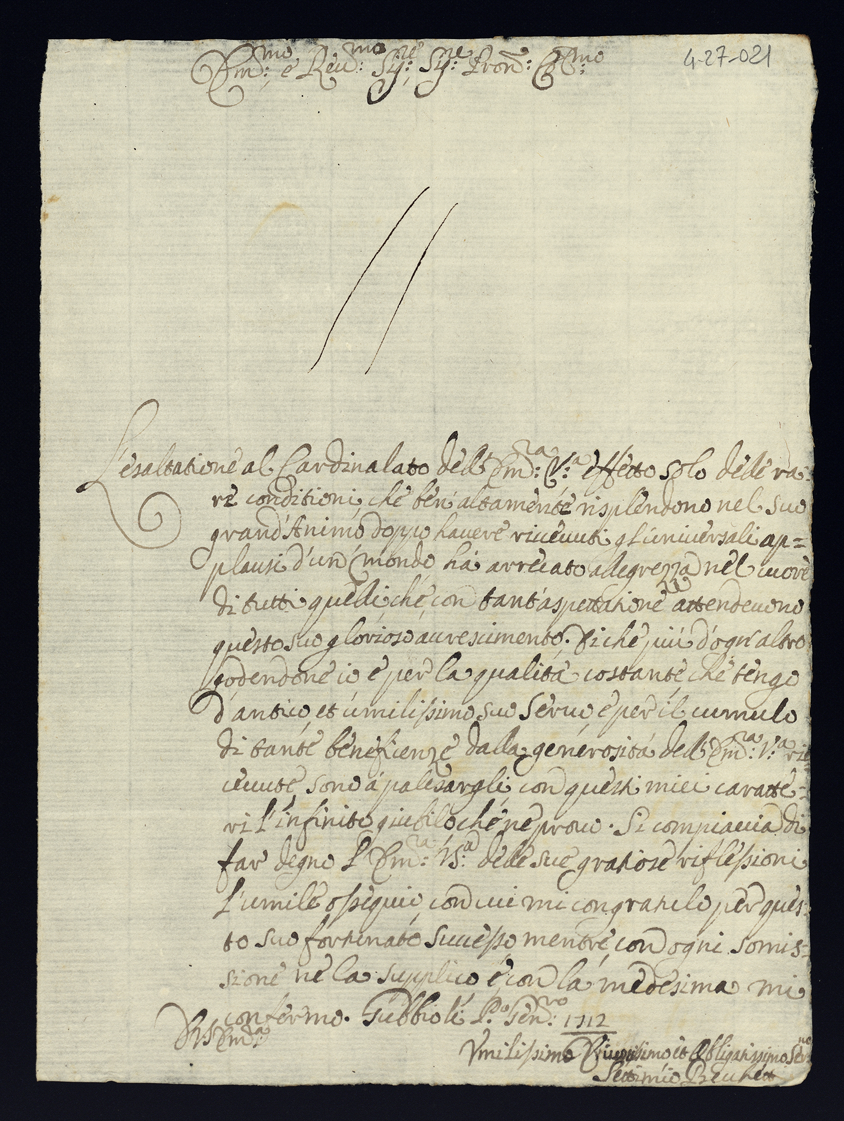 Em:mo e Reu:mo Sig:re Sig:re Pron: Col:mo
4-27-021
L'esaltatione al Cardinalato dell'Em:za V:a effetto solo dele ra-
re conditioni, che ben'altamente risplendono nel suo
grand'Animo, doppo havere riceuuti gl'universali ap=
plausi d'un mondo há arrecato alegrezza nel cuore
di tutti quelli che con tant'aspettatione attendevono
questo suo glorioso accrescimento. Di che piú d'ogn'altro
godendone io e per la qualitá costante che tengo
d'antico et umilissimo suo Seruo e per il cumulo
di tante beneficenze dalla generositá dell'Em:za V:a ri-
ceuute sono á palesargli con questi miei caratte-
ri l'infinito giubilo che ne prouo. Si compiaccia di
far degno l'Em:za V:a dele sue gratiose riflessioni
l'umile ossequio con cui mi congratulo per ques-
to suo fortunato successo mentre con ogni somis-
sione ne la supplico e con la medesima mi
confermo. Gubbio li P:o Gen:ro 1712
D V Em:za
Vmilissimo et Obligatissimo Se:uo
Settimio